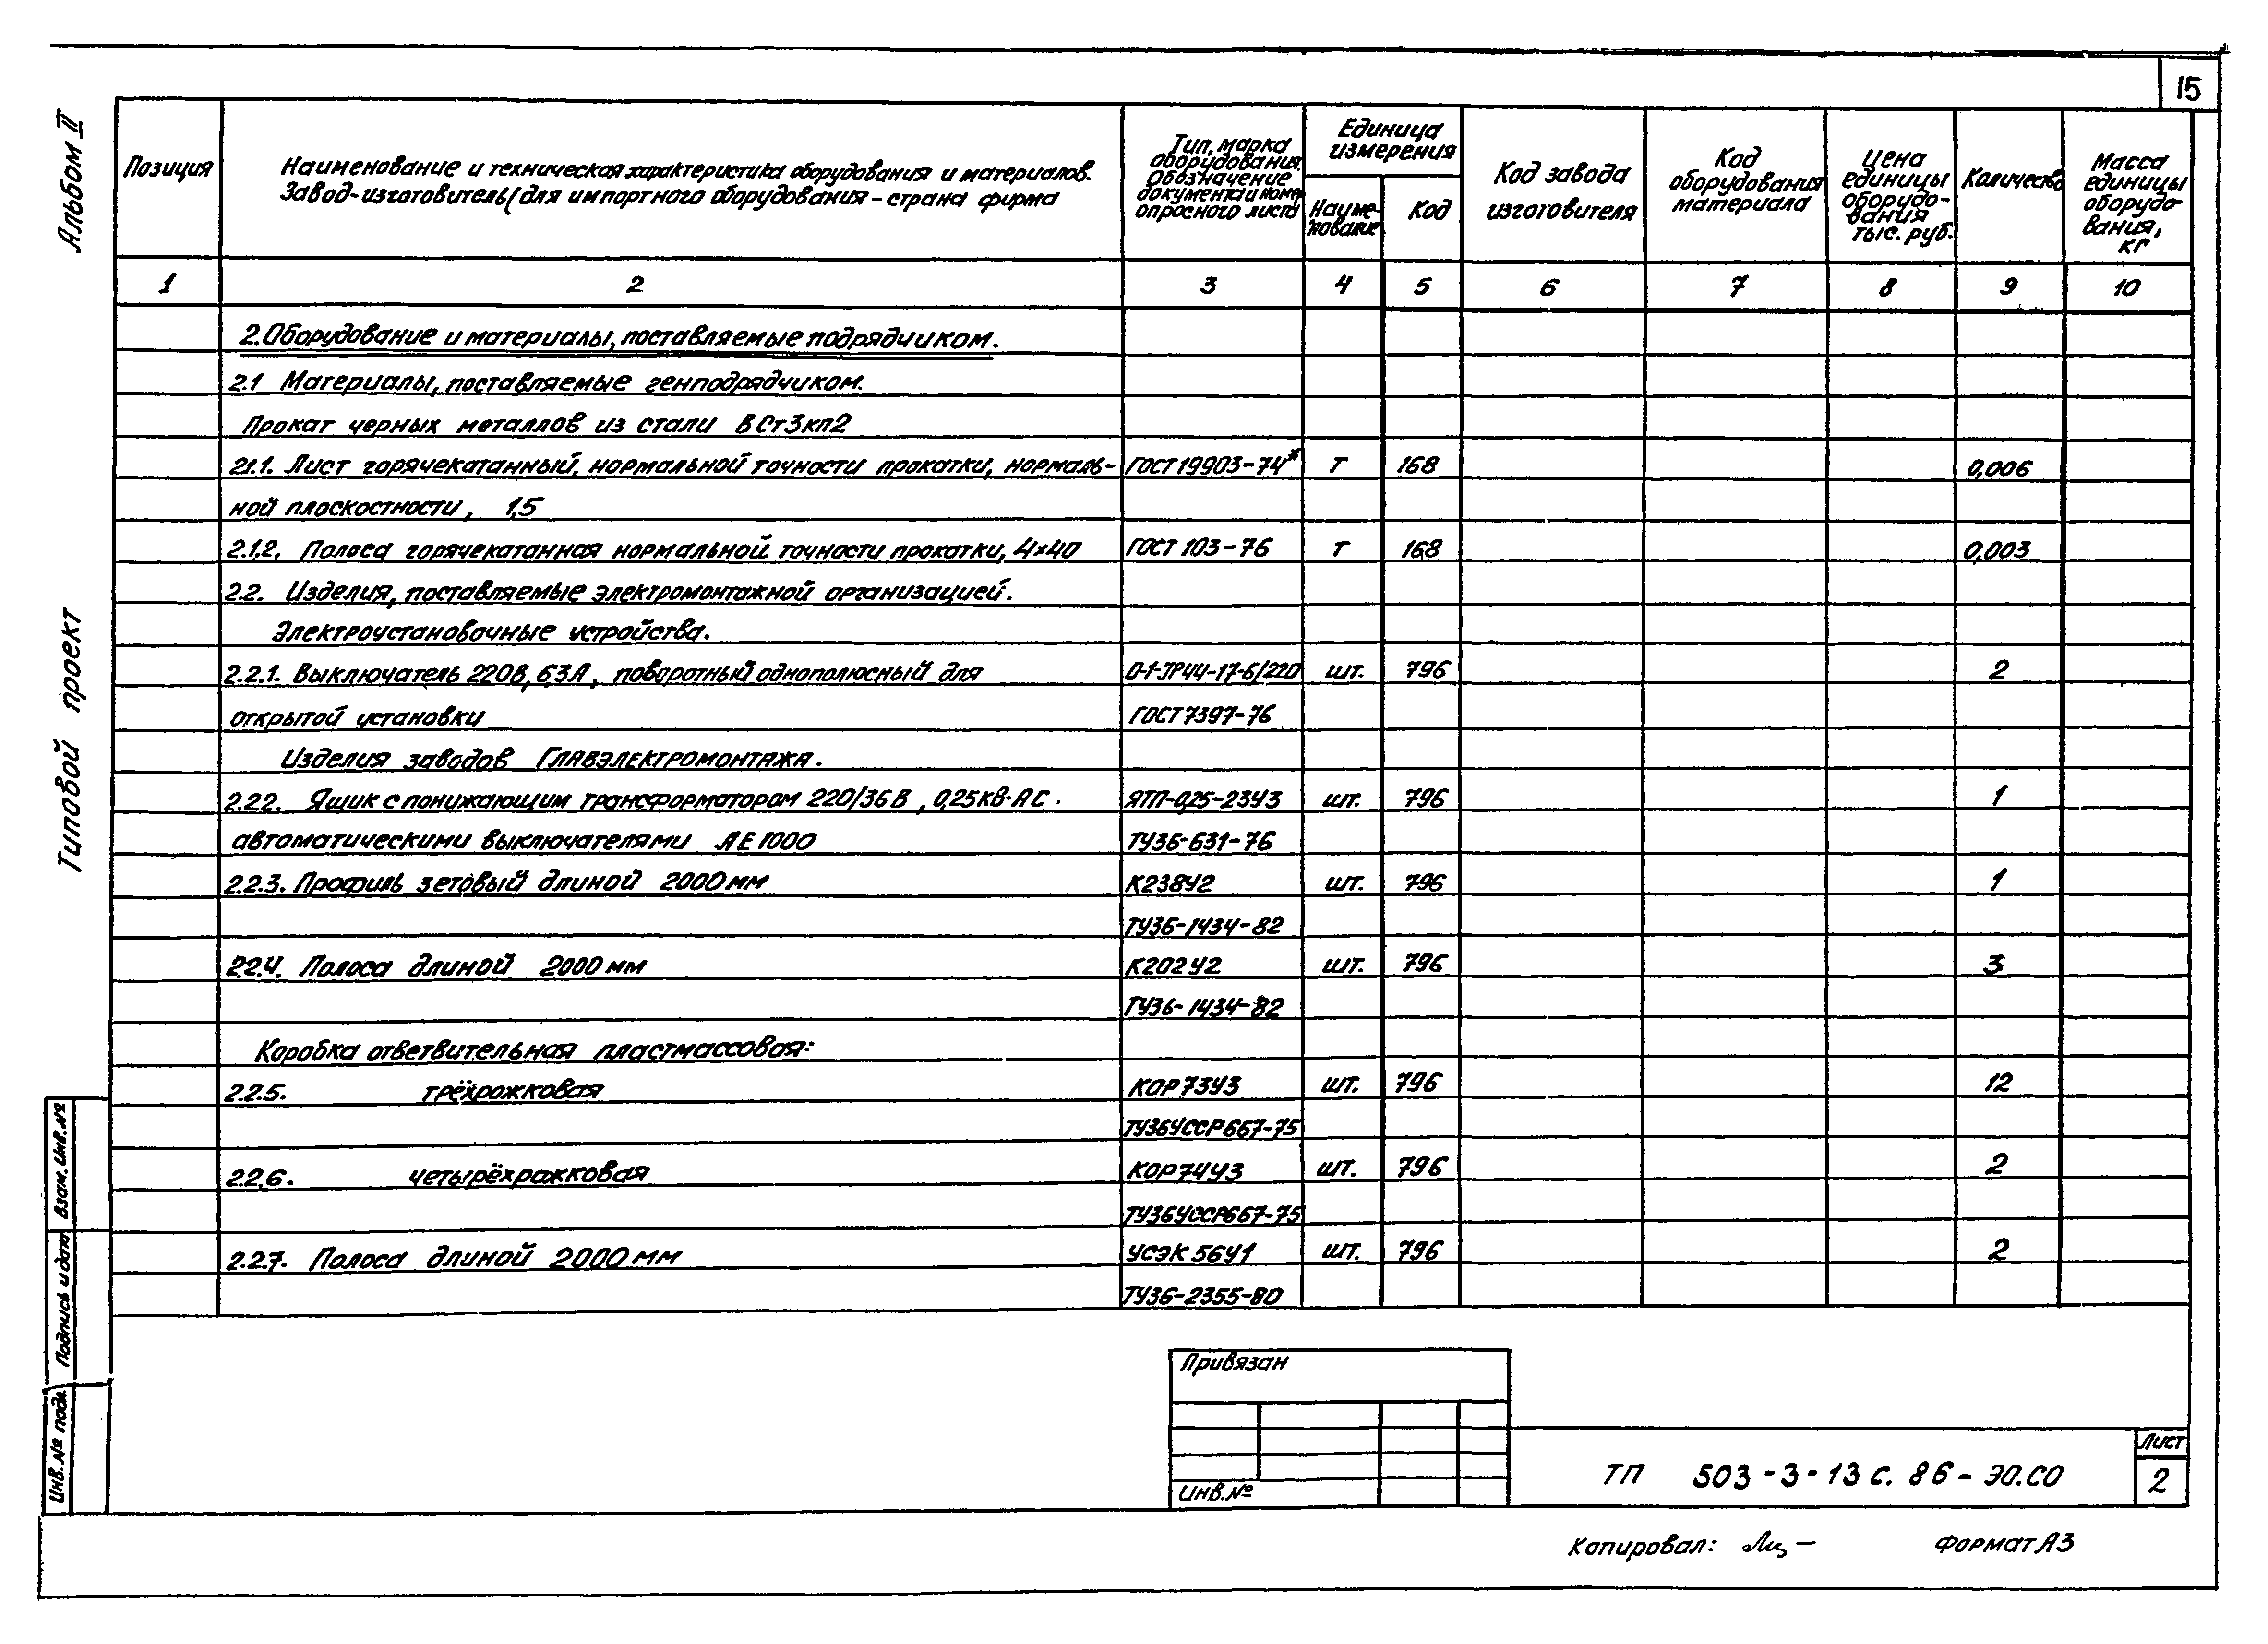 15
Альбом II
Типовой проект
Позиция
Наименование и техническая характеристика оборудования и материалов.
Завод-изготовитель (для импортного оборудования - страна фирма
Тип, марка
оборудования.
Обозначение
документа и номер
опросного листа
Единица
измерения
Наиме-
нование
Код
Код завода
изготовителя
Код
оборудования
материала
Цена
единицы
оборудо-
вания
тыс. руб.
Количество
Масса
единицы
оборудо-
вания,
кг
1 2 3 4 5 6 7 8 9 10
2. Оборудование и материалы, поставляемые подрядчиком.
2.1 Материалы, поставляемые генподрядчиком.
Прокат черных металлов из стали ВСт3кп2
2.1.1. Лист горячекатанный, нормальной точности прокатки, нормаль- ГОСТ 19903-74* Т 168 0,006
ной плоскостности, 1,5
2.1.2. Полоса горячекатанная нормальной точности прокатки, 4×40 ГОСТ 103-76 Т 168 0,003
2.2. Изделия, поставляемые электромонтажной организацией.
Электроустановочные устройства.
2.2.1. Выключатель 220В, 6,3А, поворотный однополюсный для О-1-IP44-17-6/220 шт. 796 2
открытой установки ГОСТ 7397-76
Изделия заводов ГЛАВЭЛЕКТРОМОНТАЖА.
2.2.2. Ящик с понижающим трансформатором 220/36В, 0,25кВ·А С. ЯТП-0,25-23У3 шт. 796 1
автоматическими выключателями АЕ1000 ТУ36-631-76
2.2.3. Профиль зетовый длиной 2000мм К238У2 шт. 796 1
ТУ36-1434-82
2.2.4. Полоса длиной 2000мм К202У2 шт. 796 3
ТУ36-1434-82
Коробка ответвительная пластмассовая:
2.2.5. трёхрожковая КОР73У3 шт. 796 12
ТУ36УССР667-75
2.2.6. четырёхрожковая КОР74У3 шт. 796 2
ТУ36УССР667-75
2.2.7. Полоса длиной 2000мм УСЭК 56У1 шт. 796 2
ТУ36-2355-80
Взам. Инв.№
Подпись и дата
Инв.№ подл.
Привязан
Инв.№
ТП 503-3-13с.86-ЭО.СО
Лист
2
Копировал:
Формат А3